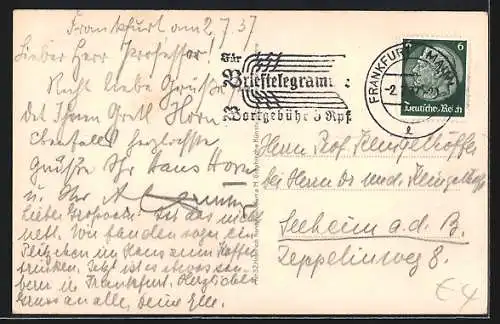 Frankfurt am 2.7.37
Lieber Herr Professor!
Recht liebe Grüße
Ihnen Gretl Horn
Ebenfalls herzlichste
Grüße Ihr Hans Horn
u. Ihr
Lieber Ist das nicht
nett. Wir fanden sogar ein
Plätzchen im Haus zum Kaffee
trinken. Jetzt ist es etwas
in Frankfurt. Herzlichen
Gruss an alle, deine Elle.
Für
Brieftelegramme
Wortgebühr 5 Rpf
FRANKFURT (MAIN)
6 6
Deutsches Reich
Herrn Prof. Klingelhöffer
bei Herrn Dr. med. Klingelhöffer
Seeheim a. d. B.
Zeppelinweg 8.
€4